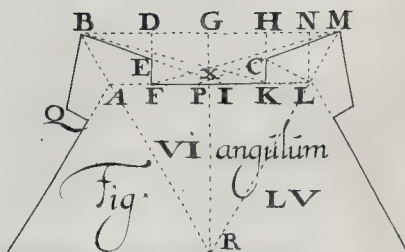 B D G H N M
E X C
A F P I K L
Q
VI angúlum
Fig. LV
R